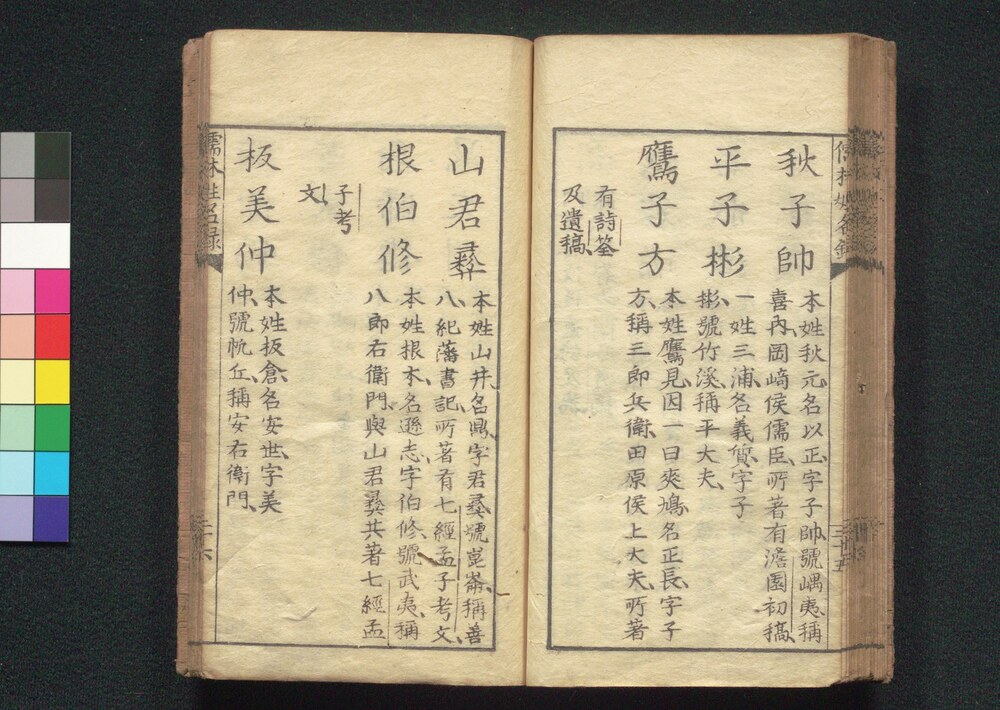 秋子帥
本姓秋元名以正字子帥號嵎夷稱
喜內岡﨑侯儒臣所著有澹園初稿
平子彬
一姓三浦名義質字子
彬號竹溪稱平大夫
鷹子方
本姓鷹見因一曰爽鳩名正長字子
方稱三郎兵衛田原侯上大夫所著
有詩筌
及遺稿
山君彝
本姓山井名鼎字君彝號崑崙稱善
八紀藩書記所著有七經孟子考文
根伯修
本姓根本名遜志字伯修號武夷稱
八郎右衛門與山君彝共著七經孟
子考
文
板美仲
本姓板倉名安世字美
仲號帆丘稱安右衛門
儒林姓名録
二十六